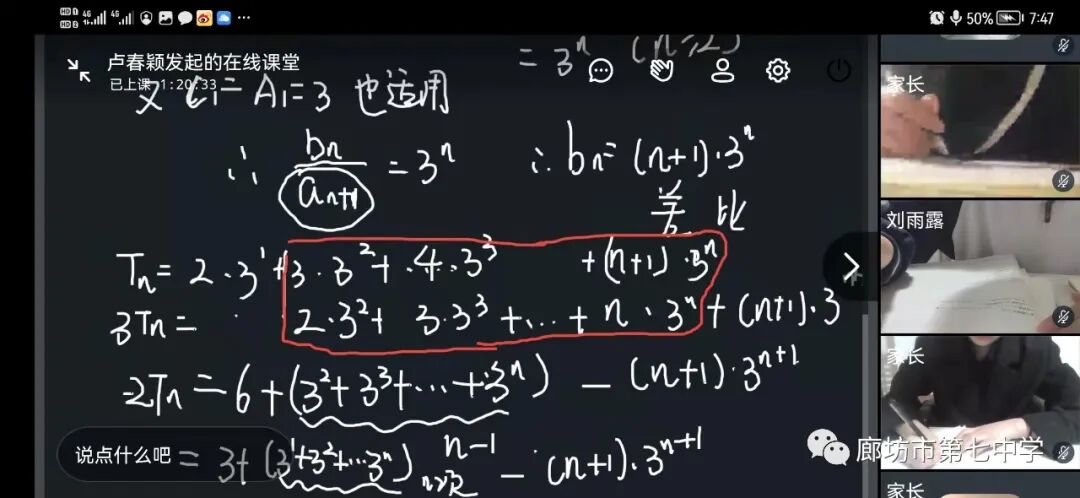 HD1 4G 4G 50% 7:47
HD2
卢春颖发起的在线课堂
已上课 1:20:33
= 3ⁿ (n≥2)
又 C₁=A₁=3 也适用
∴ bn/an+1 = 3ⁿ ∴ bn=(n+1)·3ⁿ
差 比
Tn= 2·3¹+3·3²+·4·3³ +(n+1)·3ⁿ
3Tn= 2·3²+ 3·3³+…+ n·3ⁿ+(n+1)·3
2Tn=6+(3²+3³+…+3ⁿ) -(n+1)·3ⁿ⁺¹
= 3+(3¹+3²+…3ⁿ) n-1 -(n+1)·3ⁿ⁺¹
说点什么吧
家长
刘雨露
家长
家长
廊坊市第七中学